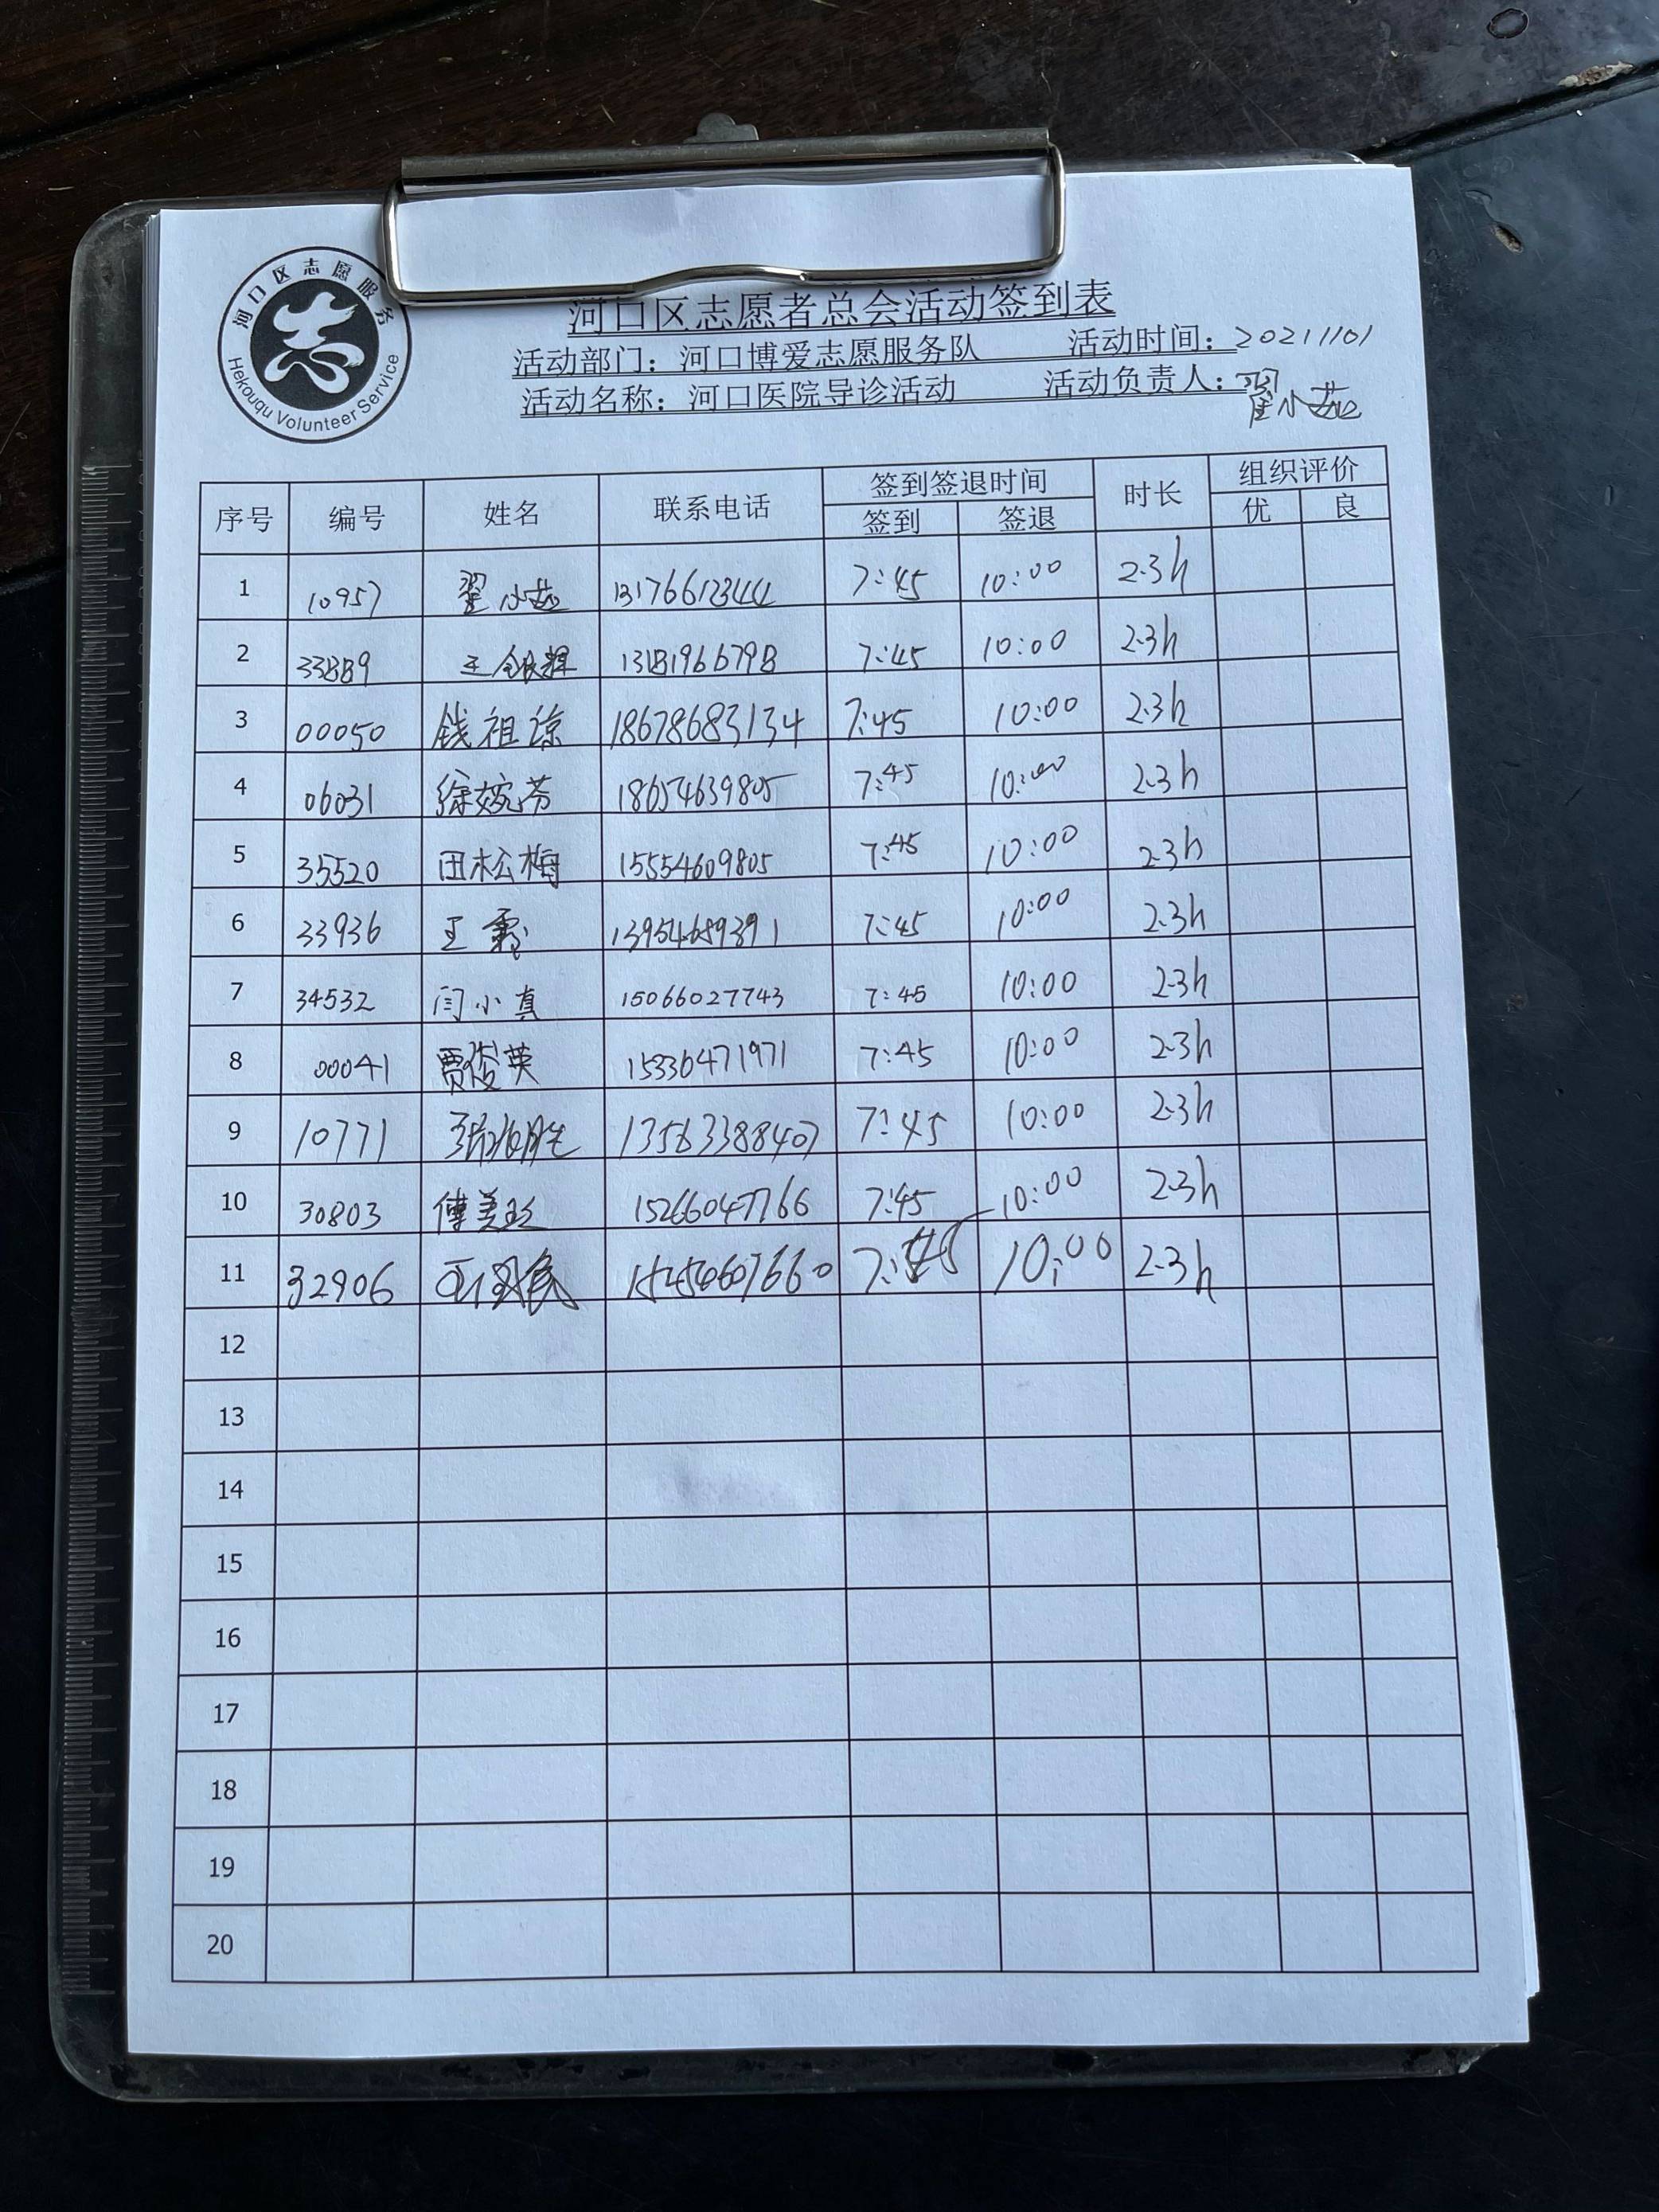 河口区志愿服务
Hekouqu Volunteer Service
河口区志愿者总会活动签到表
活动部门：河口博爱志愿服务队 活动时间：20211101
活动名称：河口医院导诊活动 活动负责人：翟小茹
序号 编号 姓名 联系电话 签到签退时间 时长 组织评价
签到 签退 优 良
1 10957 翟小茹 13176612344 7:45 10:00 2.3h
2 33889 王银辉 13181966798 7:45 10:00 2.3h
3 00050 钱祖谅 18678683134 7:45 10:00 2.3h
4 06031 徐婉芳 18654639805 7:45 10:00 2.3h
5 35520 田松梅 15554609805 7:45 10:00 2.3h
6 33936 王霞 7:45 10:00 2.3h
7 34532 闫小真 15066027743 7:45 10:00 2.3h
8 00041 贾俊英 15336471971 7:45 10:00 2.3h
9 10771 13563388407 7:45 10:00 2.3h
10 30803 傅美玲 15266047766 7:45 10:00 2.3h
11 32906 7:45 10:00 2.3h
12
13
14
15
16
17
18
19
20